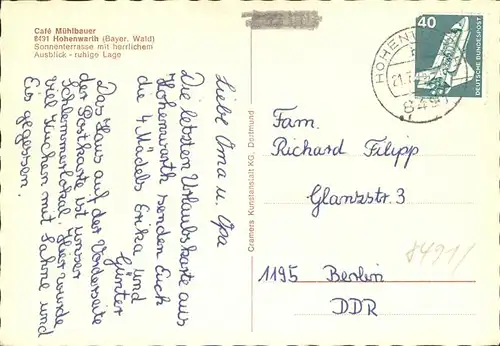 Café Mühlbauer
8491 Hohenwarth (Bayer. Wald)
Sonnenterrasse mit herrlichem
Ausblick - ruhige Lage
Liebe Oma u. Opa
Die letzten Urlaubskarte aus
Hohenwarth senden Euch
die 4 Mädels Erika und
Günter
Das Haus auf der Vorderseite
der Postkarte ist unser
Schlemmerlokal. Hier wurde
viel Kuchen mit Sahne und
Eis gegessen.
Cramers Kunstanstalt KG, Dortmund
40
DEUTSCHE BUNDESPOST
HOHEN
21.
849
Fam.
Richard Filipp
Glanzstr. 3
1195 Berlin
DDR
8491/